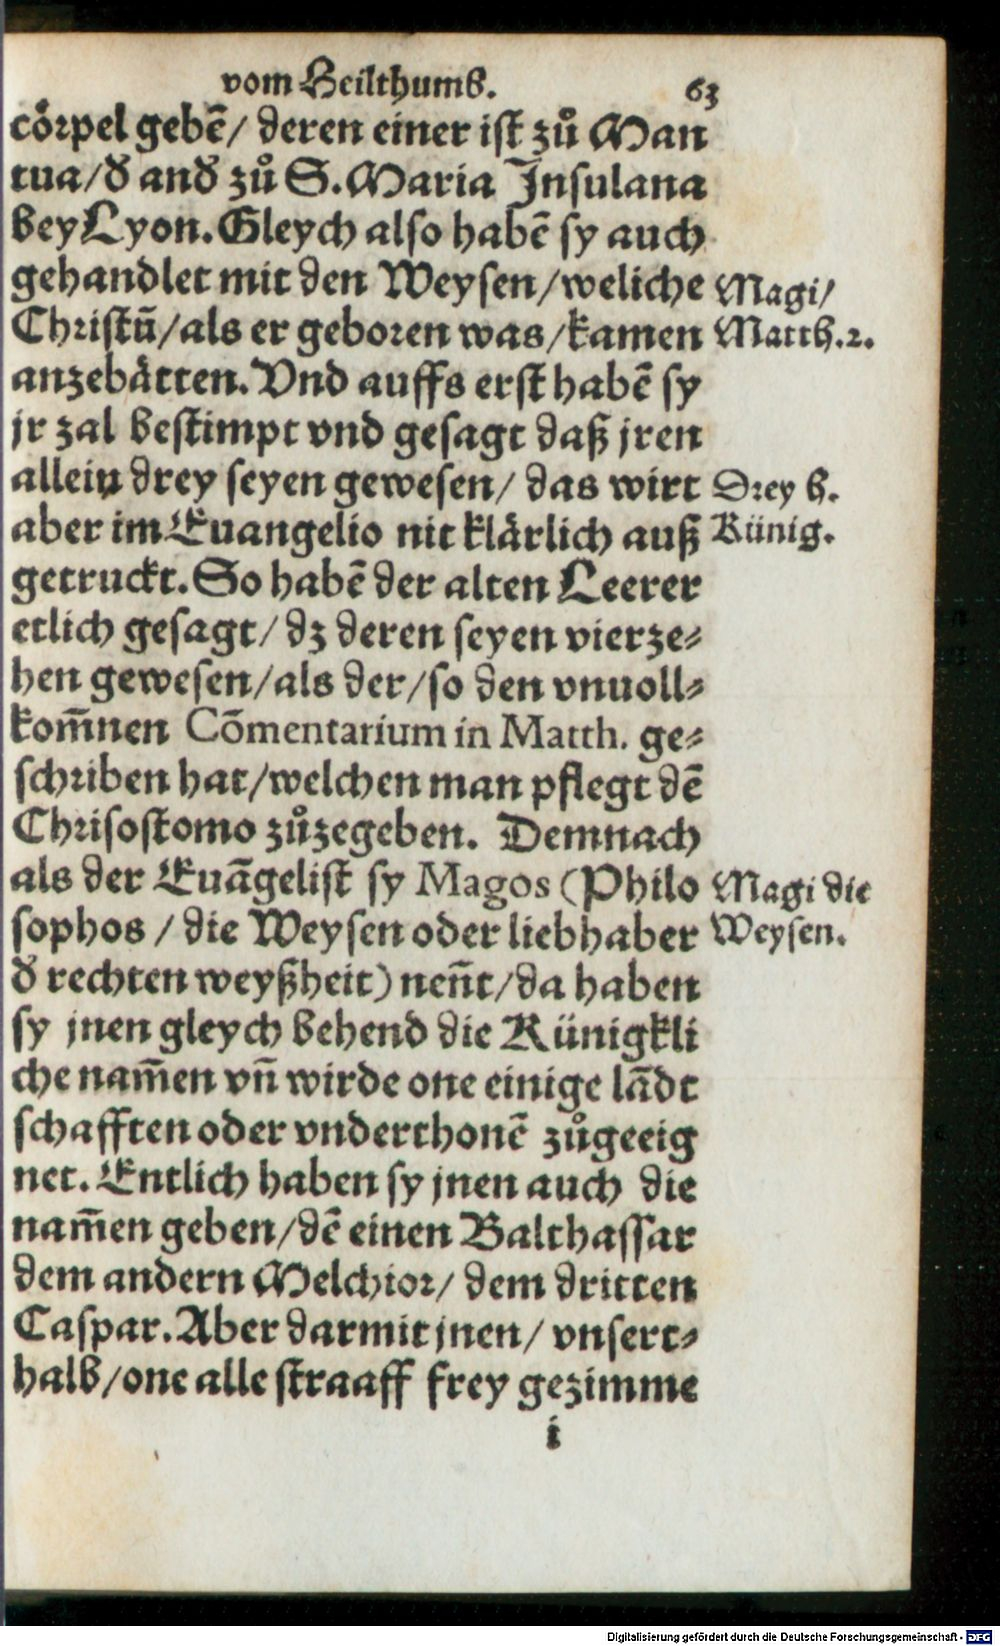 vom Heilthumb. 63
cörpel gebē/ deren einer ist zů Man
tua/ď anď zů S. Maria Insulana
bey Lyon. Gleych also habē sy auch
gehandlet mit den Weysen/weliche
Magi/
Christū/als er geboren was/kamen
Matth.2.
anzebätten. Vnd auffs erst habē sy
jr zal bestimpt vnd gesagt daß jren
allein drey seyen gewesen/ das wirt
Drey h.
aber im Euangelio nit klärlich auß
Künig.
getruckt. So habē der alten Leerer
etlich gesagt/ dz deren seyen vierze⸗
hen gewesen/als der/so den vnuoll⸗
kom̄nen Cōmentarium in Matth. ge⸗
schriben hat/welchen man pflegt dē
Chrisostomo zůzegeben. Demnach
als der Euāgelist sy Magos (Philo
Magi die
sophos / die Weysen oder liebhaber
Weysen.
ď rechten weyßheit) nen̄t/da haben
sy jnen gleych behend die Künigkli
che nam̄en vn̄ wirde one einige lādt
schafften oder vnderthonē zůgeeig
net. Entlich haben sy jnen auch die
nam̄en geben/dē einen Balthassar
dem andern Melchior/ dem dritten
Caspar. Aber darmit jnen/ vnsert⸗
halb/one alle straaff frey gezimme
i
Digitalisierung gefördert durch die Deutsche Forschungsgemeinschaft - DFG